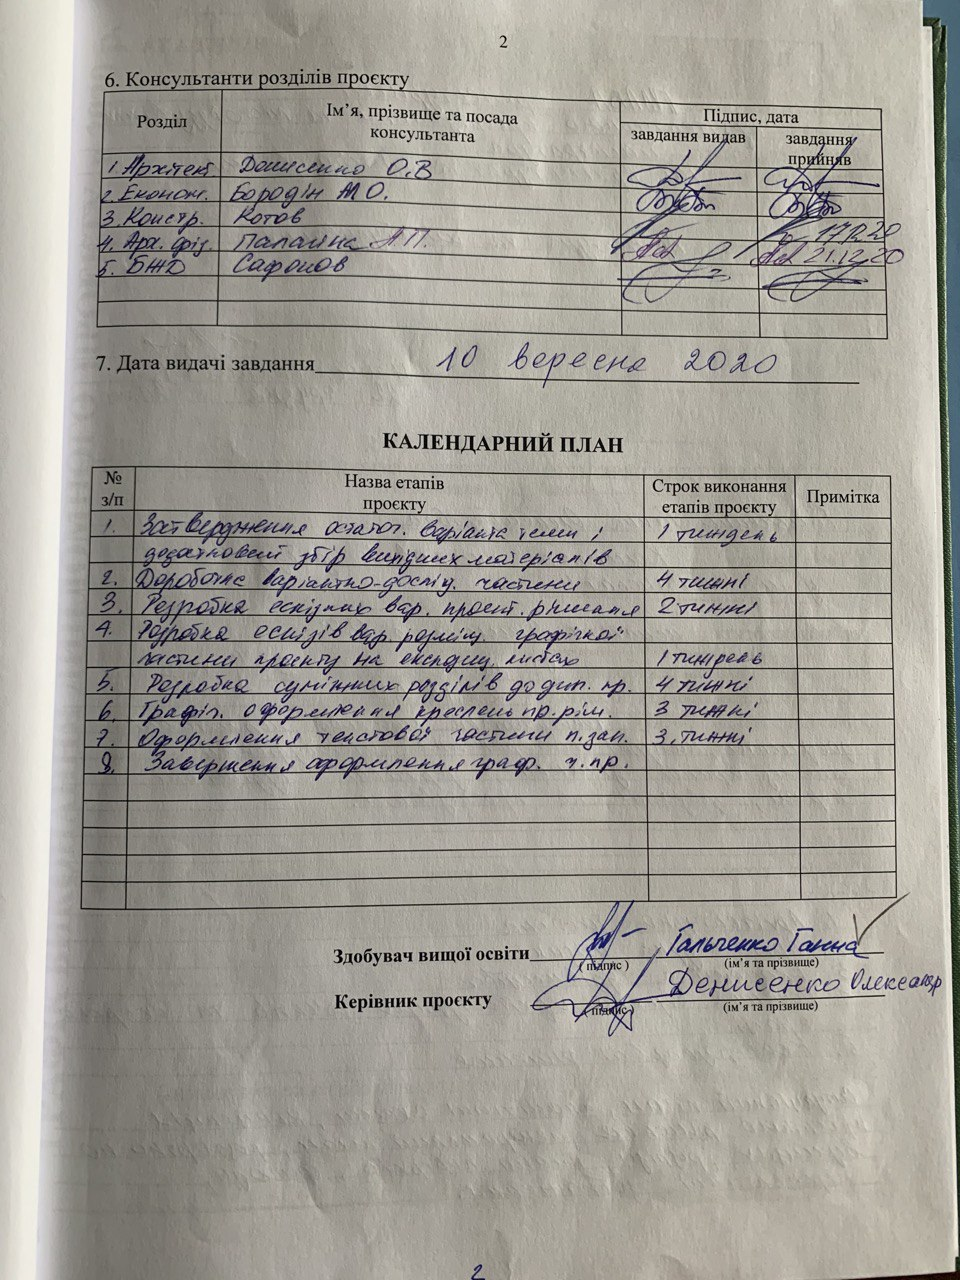 2
6. Консультанти розділів проєкту
Розділ
Ім’я, прізвище та посада
консультанта
Підпис, дата
завдання видав
завдання
прийняв
1. Архітект. Денисенко О.В
2. Економ. Бородін М О.
3. Констр. Котов
17.12.20
4. Арх. фіз. А.П.
21.12.20
5. БЖД Сафонов
7. Дата видачі завдання 10 вересня 2020
КАЛЕНДАРНИЙ ПЛАН
№
з/п
Назва етапів
проєкту
Строк виконання
етапів проєкту
Примітка
1. Затвердження остаточ. варіанта теми і 1 тиждень
додатковий збір вихідних матеріалів
2. Дороботка варіантно-дослід. частини 4 тижні
3. Розробка ескізних вар. проект. рішення 2 тижні
4. Розробка ескізів вар. розміщ. графічної
частини проєкту на експозиц. листах 1 тиждень
5. Розробка суміжних розділів до дип. пр. 4 тижні
6. Графіч. оформлення креслень пр. ріш. 3 тижні
7. Оформлення текстової частини п. зап. 3. тижні
8. Завершення оформлення граф. ч. пр.
Здобувач вищої освіти Гальченко Ганна
( підпис ) (ім’я та прізвище)
Керівник проєкту Денисенко Олександр
( підпис ) (ім’я та прізвище)
2